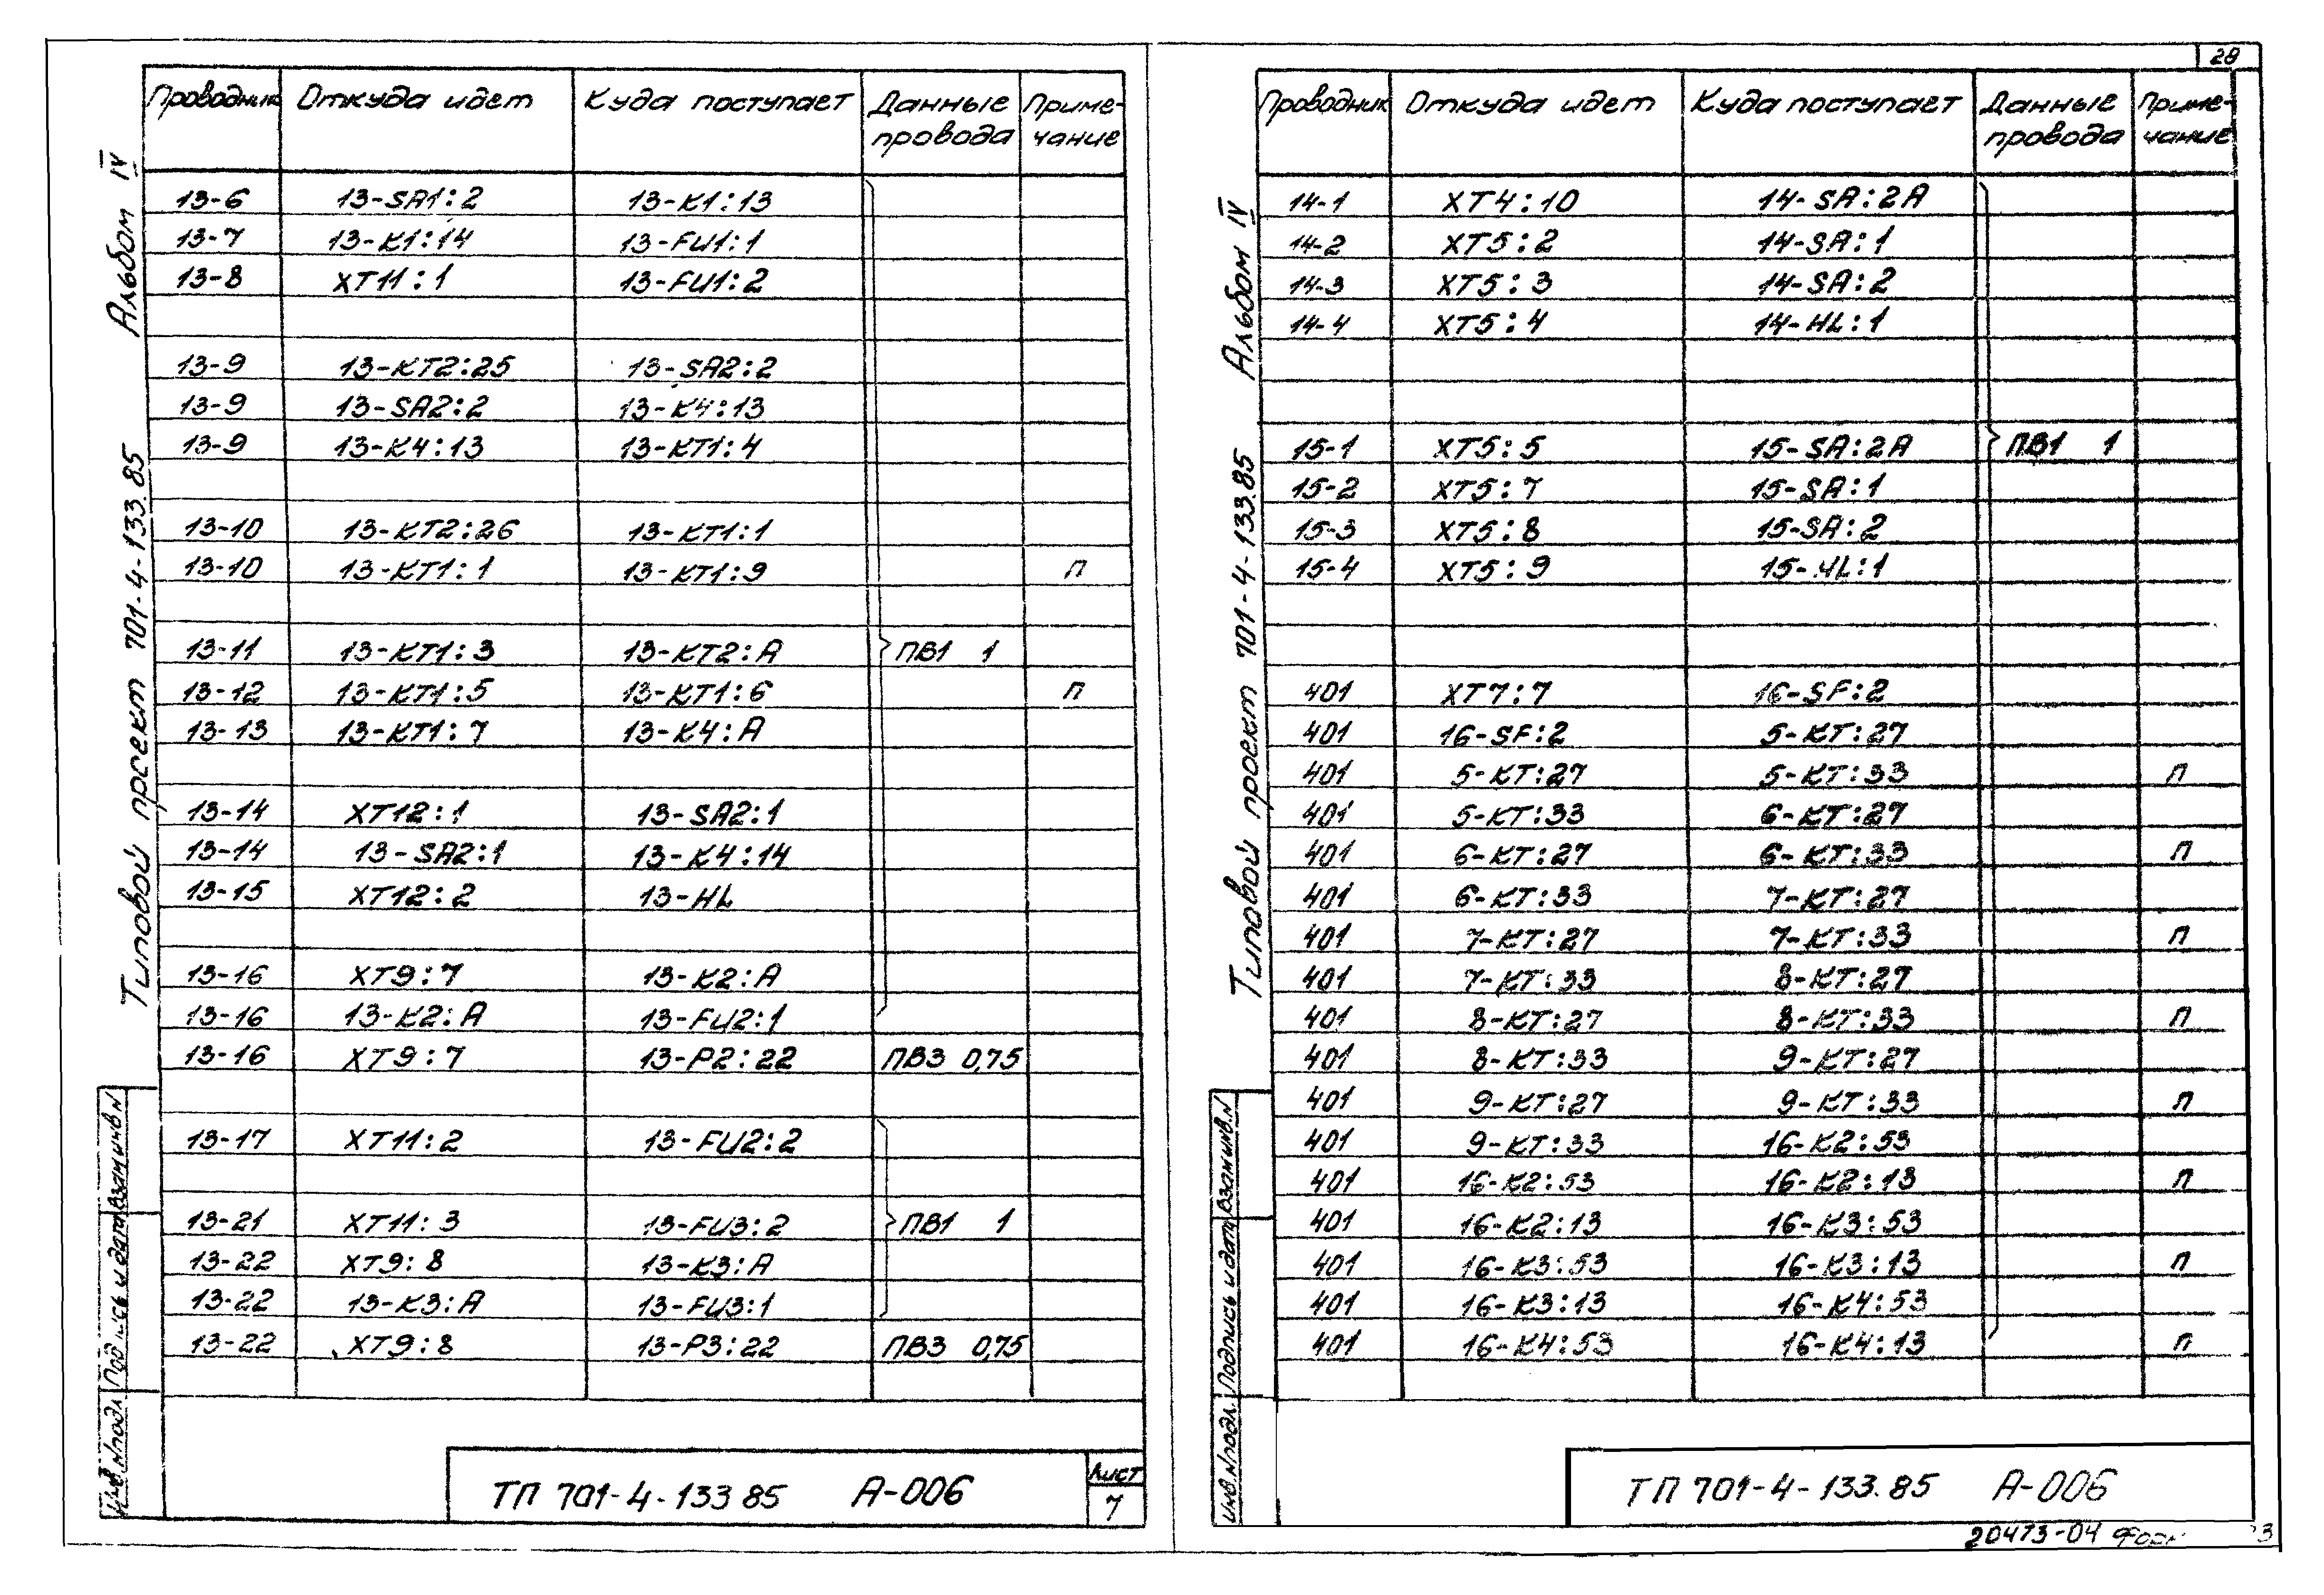 28
Альбом IV
Типовой проект 701-4-133.85
Взам инв.N
Подпись и дата
Инв.Nподл.
Проводник Откуда идет Куда поступает Данные провода Примечание
13-6 13-SA1:2 13-K1:13
13-7 13-K1:14 13-FU1:1
13-8 XT11:1 13-FU1:2
13-9 13-KT2:25 13-SA2:2
13-9 13-SA2:2 13-K4:13
13-9 13-K4:13 13-KT1:4
13-10 13-KT2:26 13-KT1:1
13-10 13-KT1:1 13-KT1:9 П
13-11 13-KT1:3 13-KT2:A ПВ1 1
13-12 13-KT1:5 13-KT1:6 П
13-13 13-KT1:7 13-K4:A
13-14 XT12:1 13-SA2:1
13-14 13-SA2:1 13-K4:14
13-15 XT12:2 13-HL
13-16 XT9:7 13-K2:A
13-16 13-K2:A 13-FU2:1
13-16 XT9:7 13-P2:22 ПВ3 0,75
13-17 XT11:2 13-FU2:2
13-21 XT11:3 13-FU3:2 ПВ1 1
13-22 XT9:8 13-K3:A
13-22 13-K3:A 13-FU3:1
13-22 XT9:8 13-P3:22 ПВ3 0,75
ТП 701-4-133 85 А-006
Лист
7
Альбом IV
Типовой проект 701-4-133.85
Взам инв.N
Подпись и дата
Инв.Nподл.
Проводник Откуда идет Куда поступает Данные провода Примечание
14-1 XT4:10 14-SA:2A
14-2 XT5:2 14-SA:1
14-3 XT5:3 14-SA:2
14-4 XT5:4 14-HL:1
15-1 XT5:5 15-SA:2A ПВ1 1
15-2 XT5:7 15-SA:1
15-3 XT5:8 15-SA:2
15-4 XT5:9 15-HL:1
401 XT7:7 16-SF:2
401 16-SF:2 5-KT:27
401 5-KT:27 5-KT:33 П
401 5-KT:33 6-KT:27
401 6-KT:27 6-KT:33 П
401 6-KT:33 7-KT:27
401 7-KT:27 7-KT:33 П
401 7-KT:33 8-KT:27
401 8-KT:27 8-KT:33 П
401 8-KT:33 9-KT:27
401 9-KT:27 9-KT:33 П
401 9-KT:33 16-K2:53
401 16-K2:53 16-K2:13 П
401 16-K2:13 16-K3:53
401 16-K3:53 16-K3:13 П
401 16-K3:13 16-K4:53
401 16-K4:53 16-K4:13 П
ТП 701-4-133.85 А-006
20473-04